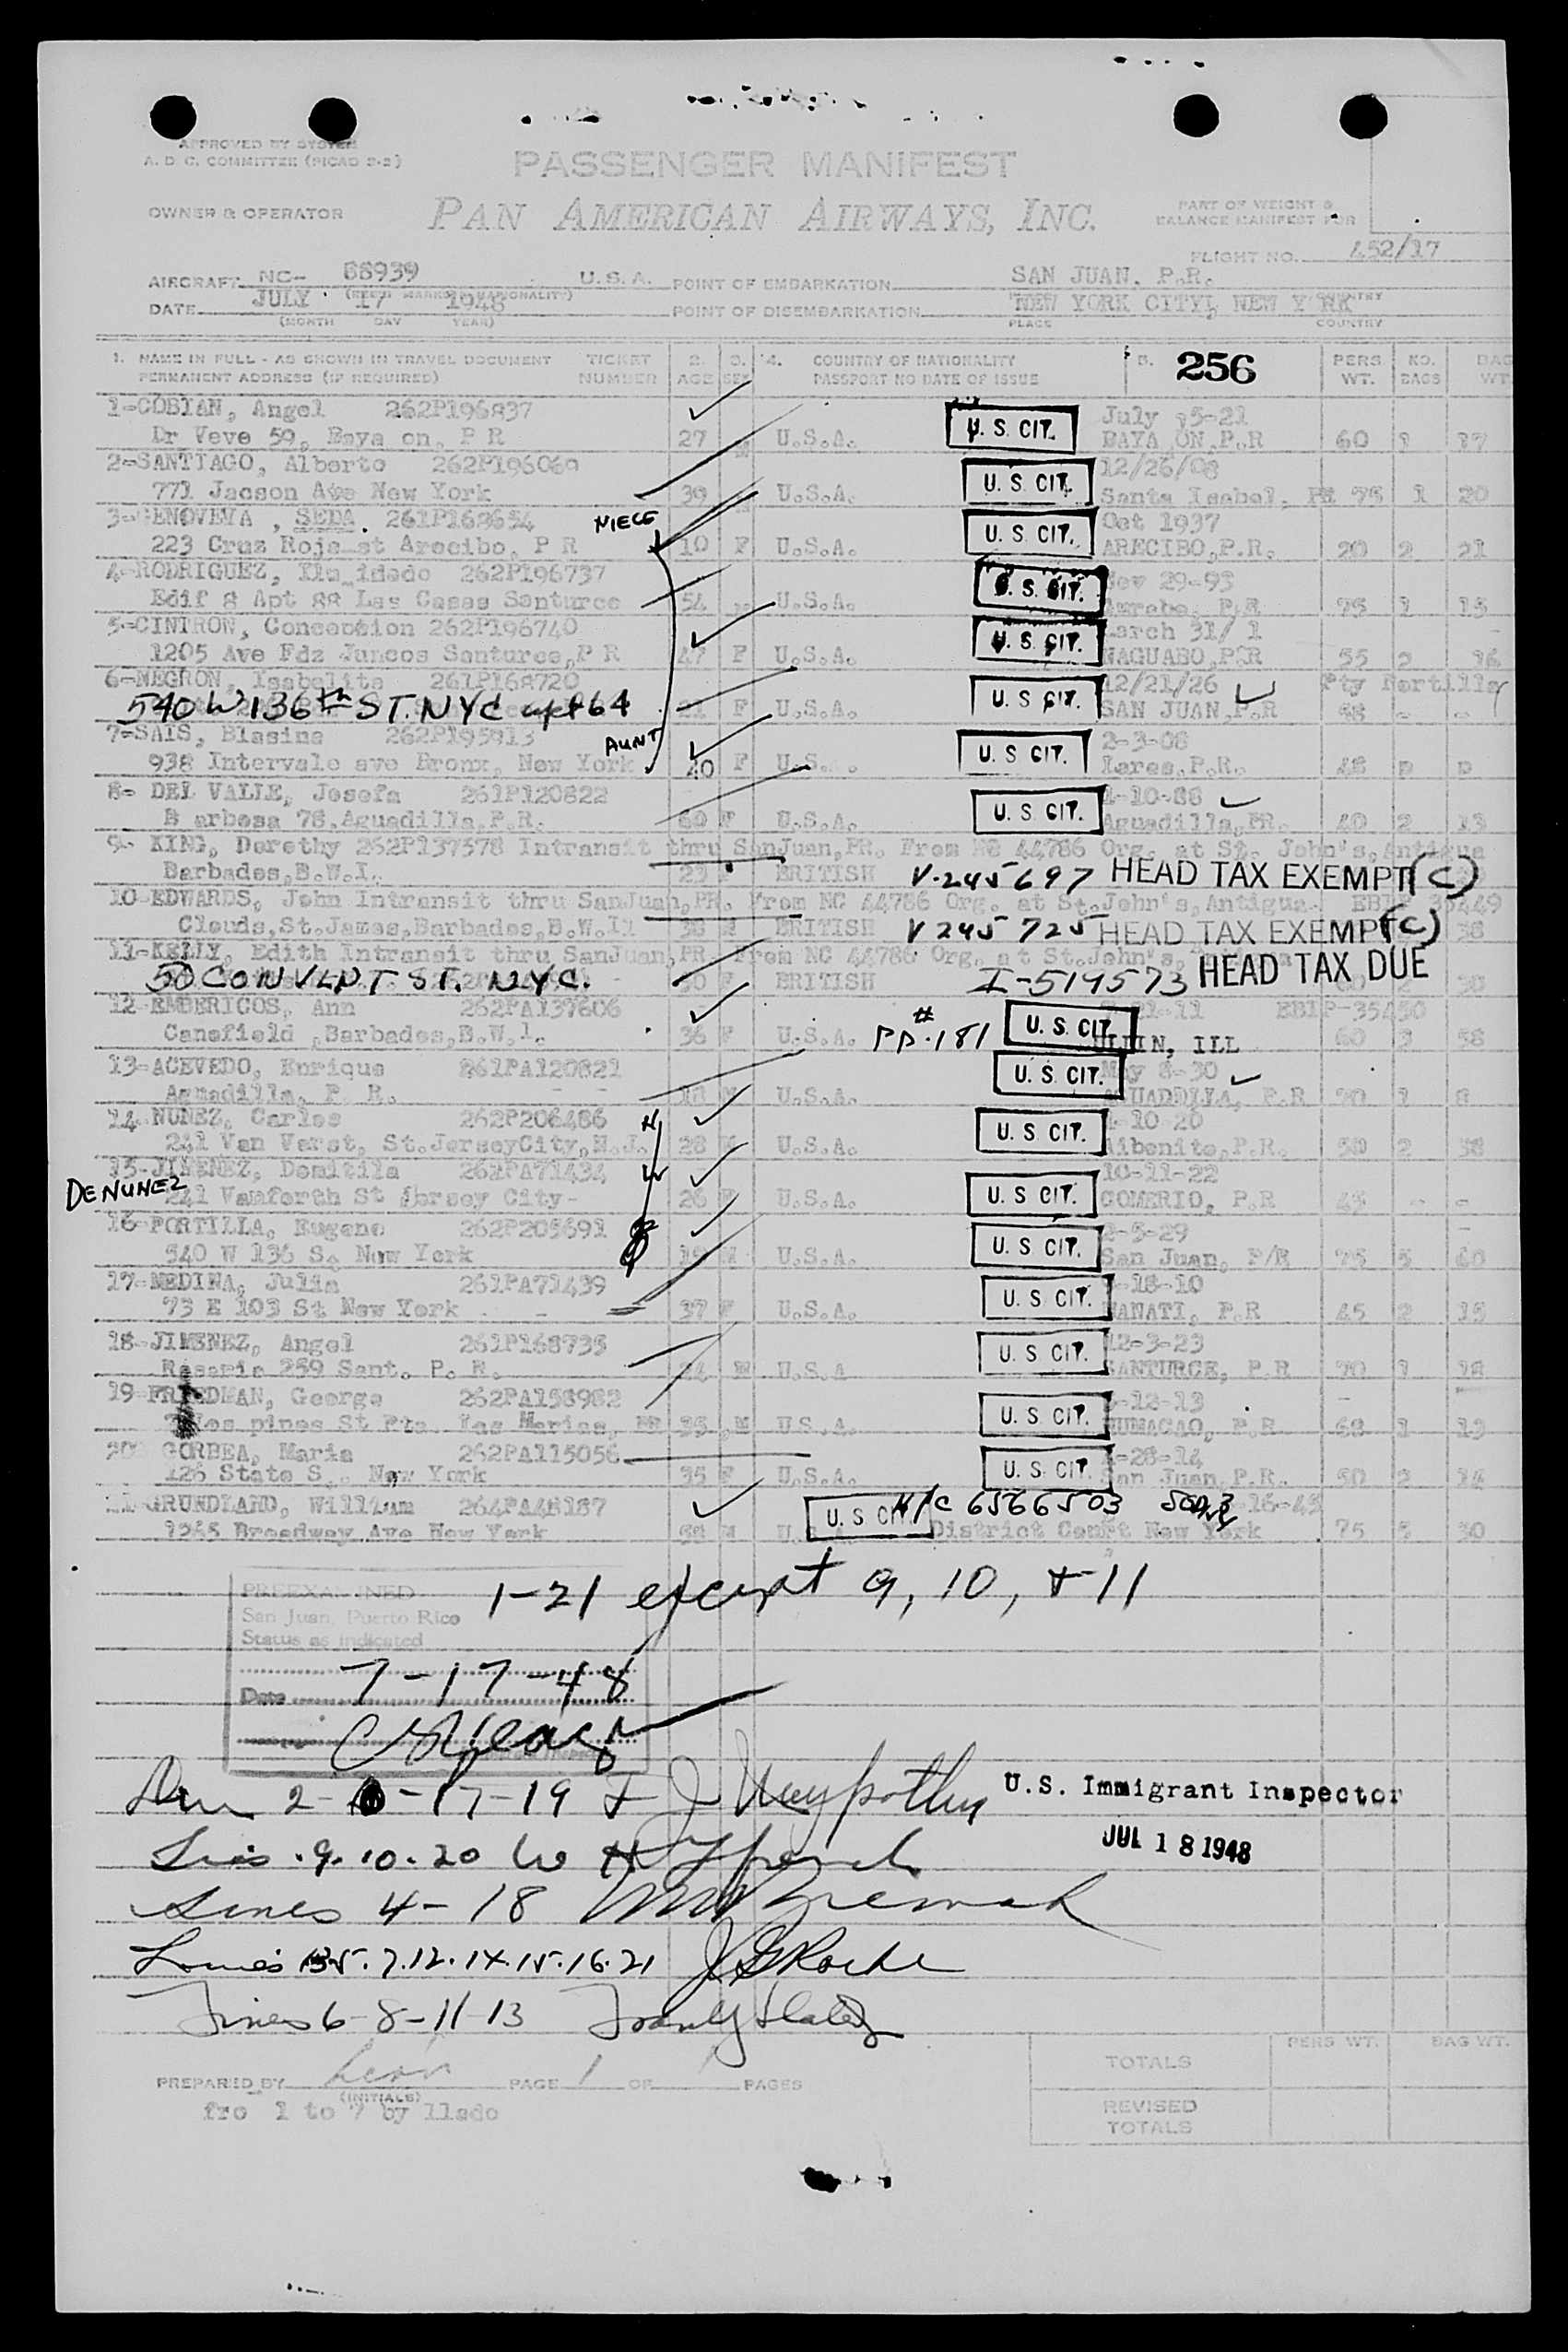 APPROVED BY SYSTEM
A. D. C. COMMITTEE (PICAO 2-2)
PASSENGER MANIFEST
OWNER & OPERATOR
PAN AMERICAN AIRWAYS, INC.
PART OF WEIGHT &
BALANCE MANIFEST FOR
FLIGHT NO. 452/17
AIRCRAFT NC- 88939 U.S.A. POINT OF EMBARKATION SAN JUAN, P.R.
DATE JULY 17 1948 POINT OF DISEMBARKATION NEW YORK CITY, NEW Y RK
(MONTH DAY YEAR) PLACE COUNTRY
1. NAME IN FULL - AS SHOWN IN TRAVEL DOCUMENT TICKET 2. 3. 4. COUNTRY OF NATIONALITY 5. 256 PERS. NO. BAG
PERMANENT ADDRESS (IF REQUIRED) NUMBER AGE SEX PASSPORT NO DATE OF ISSUE WT. BAGS WT.
1-COBIAN, Angel 262P196837 U. S. CIT. July 5-21
Dr Veve 59, Baya on, P R 27 M U.S.A. BAYA ON,P.R 60 1 17
2-SANTIAGO, Alberto 262P196069 U. S. CIT. 12/26/08
771 Jacson Ave New York 39 U.S.A. Santa Isabel, PR 75 1 20
3-GENOVEVA, SEDA. 261P168654 NIECE U. S. CIT. Oct 1937
223 Cruz Roja st Arecibo, P R 10 F U.S.A. ARECIBO,P.R. 20 2 21
4-RODRIGUEZ, 262P196737 U. S. CIT. Nov 29-93
Edif 8 Apt 88 Las Casas Santurce 54 U.S.A. P.R 75 1 15
5-CINTRON, Conception 262P196740 U. S. CIT. March 31/ 1
1205 Ave Fdz Juncos Santurce,P R 47 F U.S.A. NAGUABO,P.R 55 2 16
6-NEGRON, Isabelita 261P168720 U. S CIT. 12/21/26 Pty Portilla
540 W 136th ST. NYC apt 64 21 F U.S.A. SAN JUAN,P.R - -
7-SAIS, Blasina 262P195813 AUNT U. S CIT. 2-3-08
938 Intervale ave Bronx, New York 40 F U.S. . Lares,P.R. 48 p p
8- DEL VALLE, Josefa 261P120822 U. S CIT. -10-88
B arbosa 78,Aguadilla,P.R. 60 F U.S.A. Aguadilla,PR. 40 2 13
9- KING, Dorothy 262P137578 Intransit thru SanJuan,PR. From NC 44786 Org. at St. John's,Antigua
Barbados,B.W.I. 23 BRITISH V-245697 HEAD TAX EXEMPT (C)
10-EDWARDS, John Intransit thru SanJuan,PR. From NC 44786 Org. at St.John's,Antigua. EBIP 35449
Clouds,St.James,Barbados,B.W.I. 38 M BRITISH V 245 725 HEAD TAX EXEMPT (C) 38
11-KELLY, Edith Intransit thru SanJuan,PR. From NC 44786 Org. at St.John's,
50 CONVENT ST. NYC. F BRITISH I-519573 HEAD TAX DUE
12-EMBERICOS, Ann 262PA137606 U. S. CIT. 11 EBIP-35450
Canefield ,Barbados,B.W.I. 36 F U.S.A. PP.# 181 ULLIN, ILL 60 3 58
13-ACEVEDO, Enrique 261PA120821 U. S. CIT. May 8-30
Aguadilla, P. R. 18 M U.S.A. AGUADILLA, P.R 70 1 8
14-NUNEZ, Carlos 262P206486 H U. S. CIT. -10-20
241 Van Verst, St.JerseyCity,N.J. 28 M U.S.A. Aibonito,P.R. 50 2 38
15-JIMENEZ, Domitila 262PA71434 W U. S CIT. 10-11-22
DE NUNEZ 241 Vanforth St Jersey City- 26 F U.S.A. COMERIO, P.R 43 - -
16-PORTILLA, Eugene 262P205691 U. S CIT. 2-5-29
540 W 136 S. New York 19 M U.S.A. San Juan, P/R 75 5 60
17-MEDINA, Julia 261PA71439 U. S CIT. -18-10
73 E 103 St New York 37 F U.S.A. MANATI, P.R 45 2 15
18-JIMENEZ, Angel 261P168735 U. S CIT. 12-3-23
Rosario 259 Sant. P. R. 24 M U.S.A SANTURCE, P.R 70 1 18
19-FRIEDMAN, George 262PA158982 U. S CIT. -12-13
Los pinos St Pta. Las Marias, PR 35 M US.A. HUMACAO, P.R 68 1 13
20 GORBEA, Maria 262PA115056 U. S. CIT. -28-14
126 State S . New York 35 F U.S.A. San Juan,P.R. 50 2 14
21-GRUNDLAND, William 264PA48187 U. S CIT. N/C 6566503 16-45
1265 Broadway Ave New York M District Court New York 75 5 30
1-21 except 9, 10, + 11
PREEXAMINED
San Juan, Puerto Rico
Status as indicated
Date 7-17-48
2- -17-19 U.S. Immigrant Inspector
JUL 18 1948
Lines 9. 10. 20
Lines 4- 18
Lines 5. 7. 12. 14. 15. 16. 21 J G Roche
Lines 6-8-11-13
PREPARED BY Leon PAGE 1 OF PAGES
(INITIALS)
fro 1 to 7 by llado
PERS WT. BAG WT.
TOTALS
REVISED
TOTALS